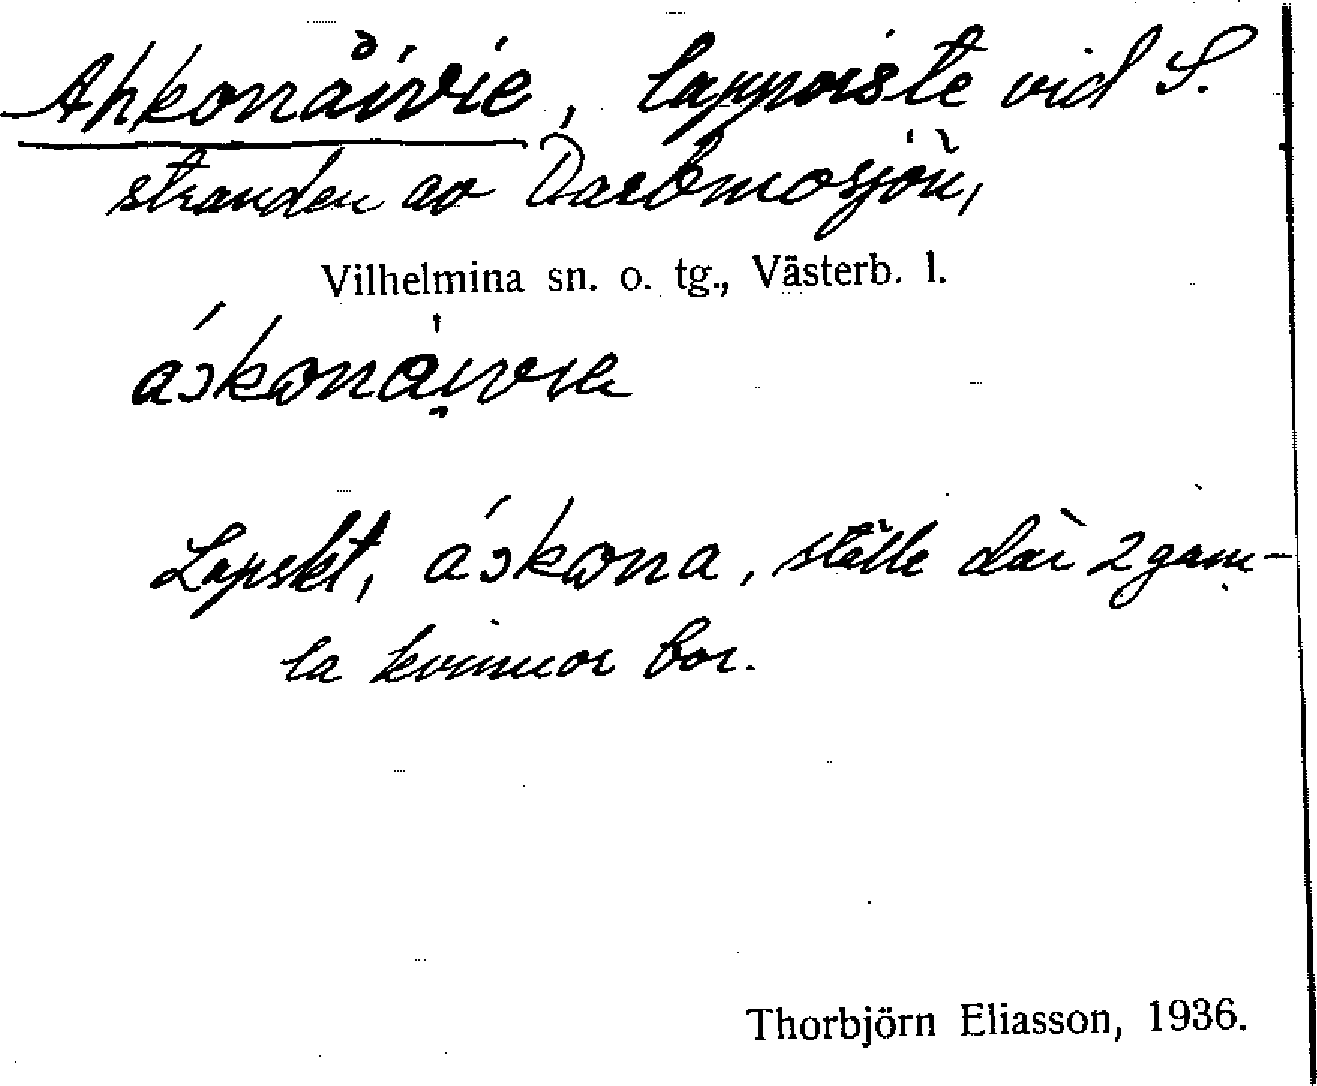 Ahkonåivie, lappviste vid S.
stranden av Daebmosjön,
Vilhelmina sn. o. tg., Västerb. l.
áɔkωnạivιε
Lapskt, áɔkωna, ställe där 2 gam-
la kvinnor bor.
Thorbjörn Eliasson, 1936.